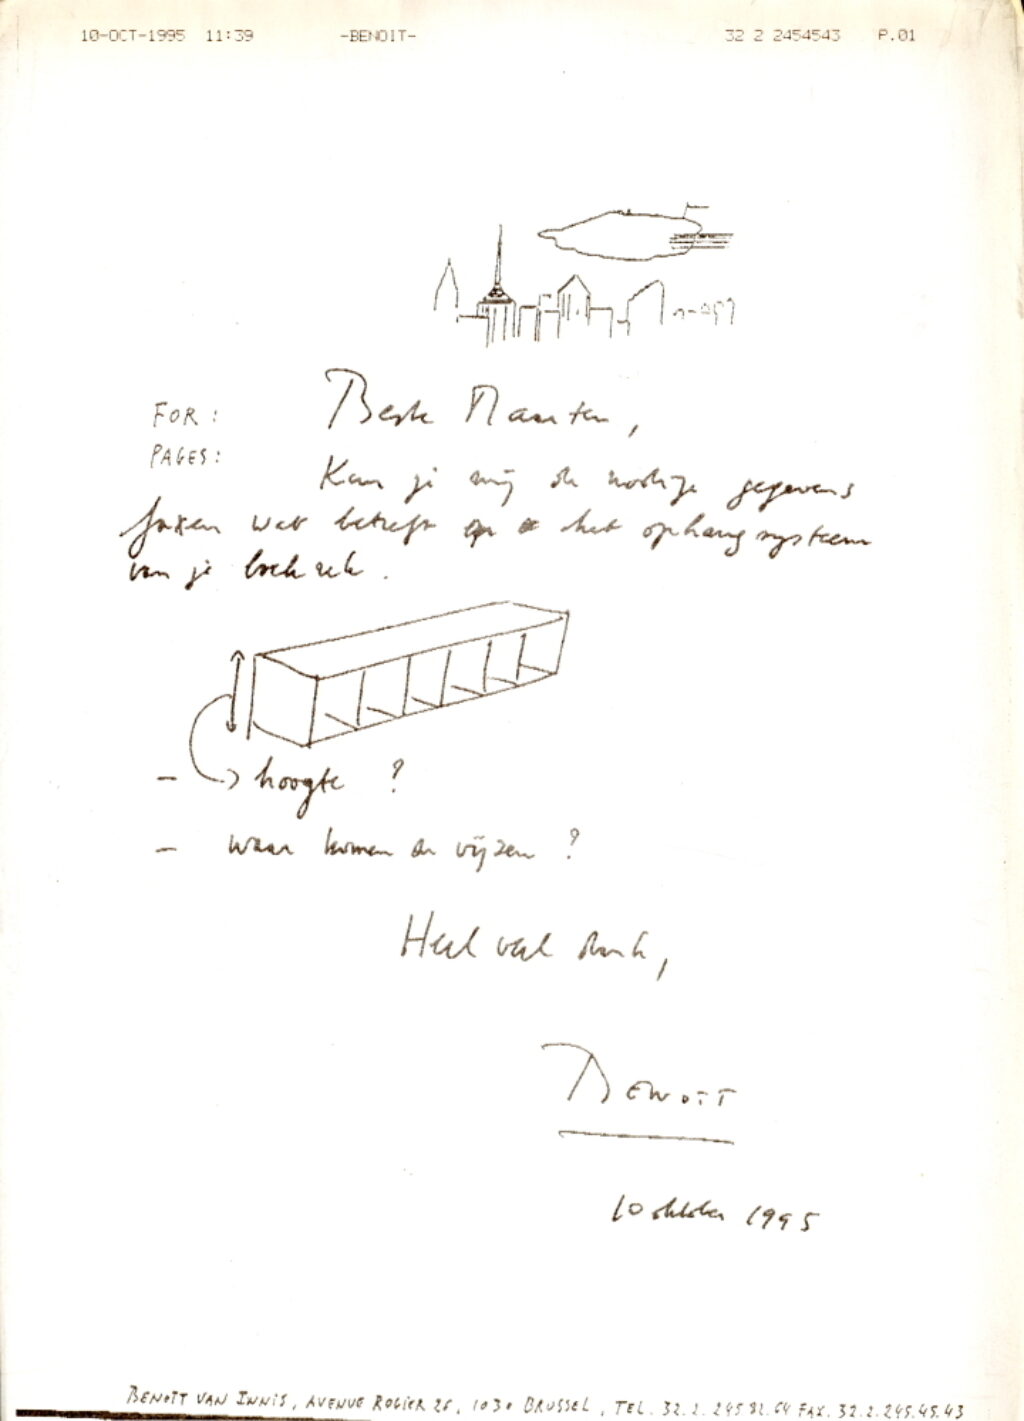 10-OCT-1995 11:39 -BENOIT- 32 2 2454543 P.01
FOR :
Beste Maarten,
PAGES:
Kan je mij de nodige gegevens
faxen wat betreft op het ophangsysteem
van je boekrek.
- hoogte ?
- waar komen de vijzen ?
Heel veel dank,
BENOIT
10 oktober 1995
BENOÎT VAN INNIS, AVENUE ROGIER 26, 1030 BRUSSEL, TEL. 32.2.245 82.64 FAX. 32.2.245.45.43